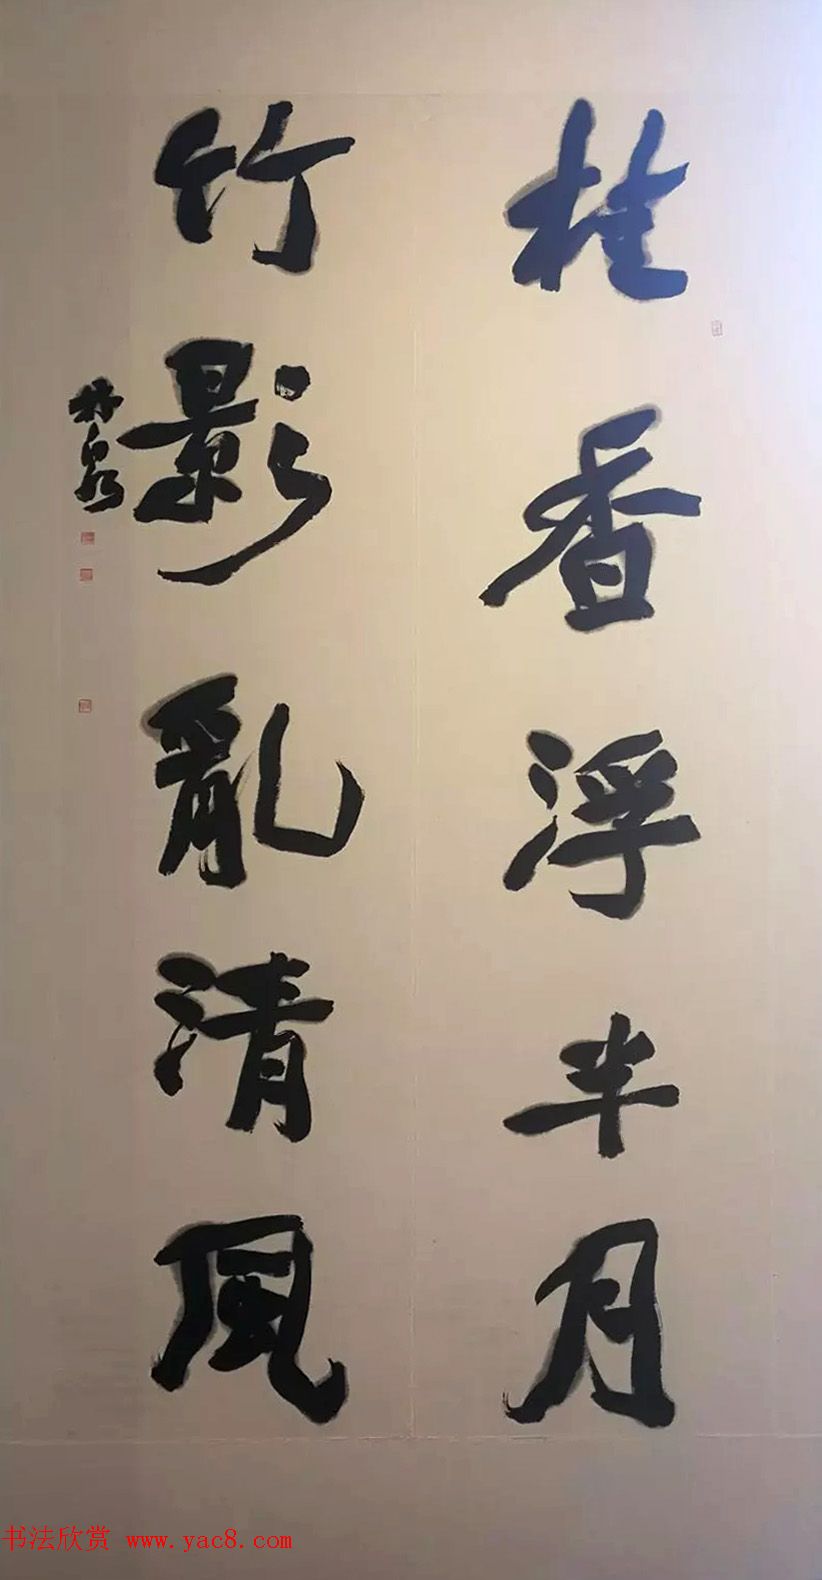 桂香浮半月
竹影亂清風
林泉
书法欣赏 www.yac8.com